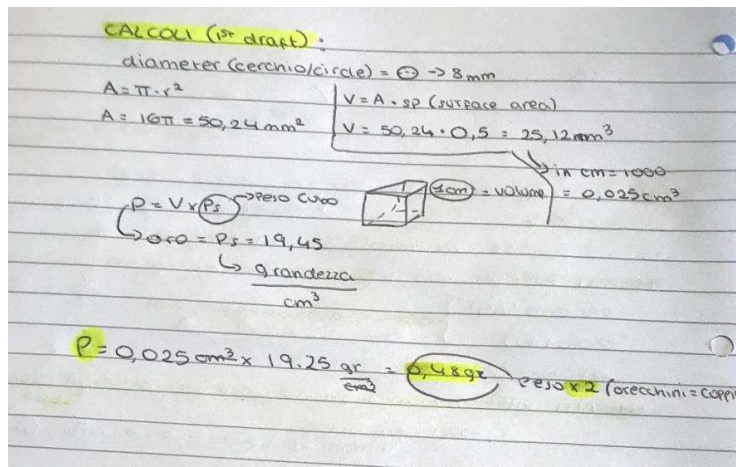 CALCOLI (1st draft):
diameter (cerchio/circle) = → 8mm
A = π · r²
A = 16π = 50,24 mm²
V = A · sp (surface area)
V = 50,24 · 0,5 = 25,12 mm³
in cm = 1000
= 0,025 cm³
P = V x Ps → peso cubo
1cm = volume
oro = Ps = 19,45
grandezza
cm³
P = 0,025 cm³ x 19.25 gr/cm³ = 0,48gr peso x 2 (orecchini = coppi